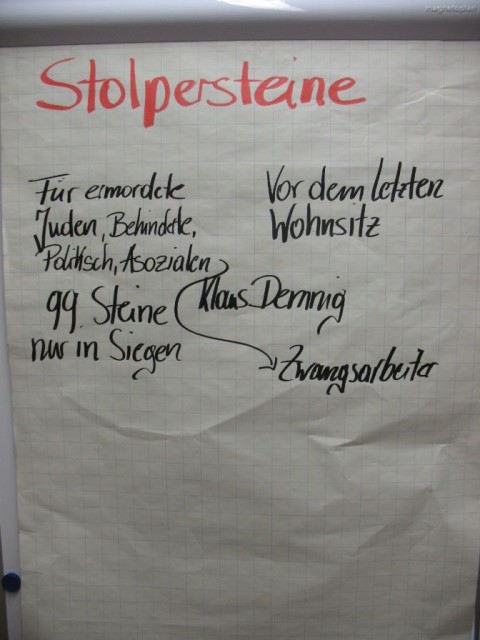 magnetoplan
Stolpersteine
Für ermordete
Juden, Behinderte,
Politisch, Asozialen
99 Steine
nur in Siegen
Vor dem letzten
Wohnsitz
Klaus Demnig
Zwangsarbeiter